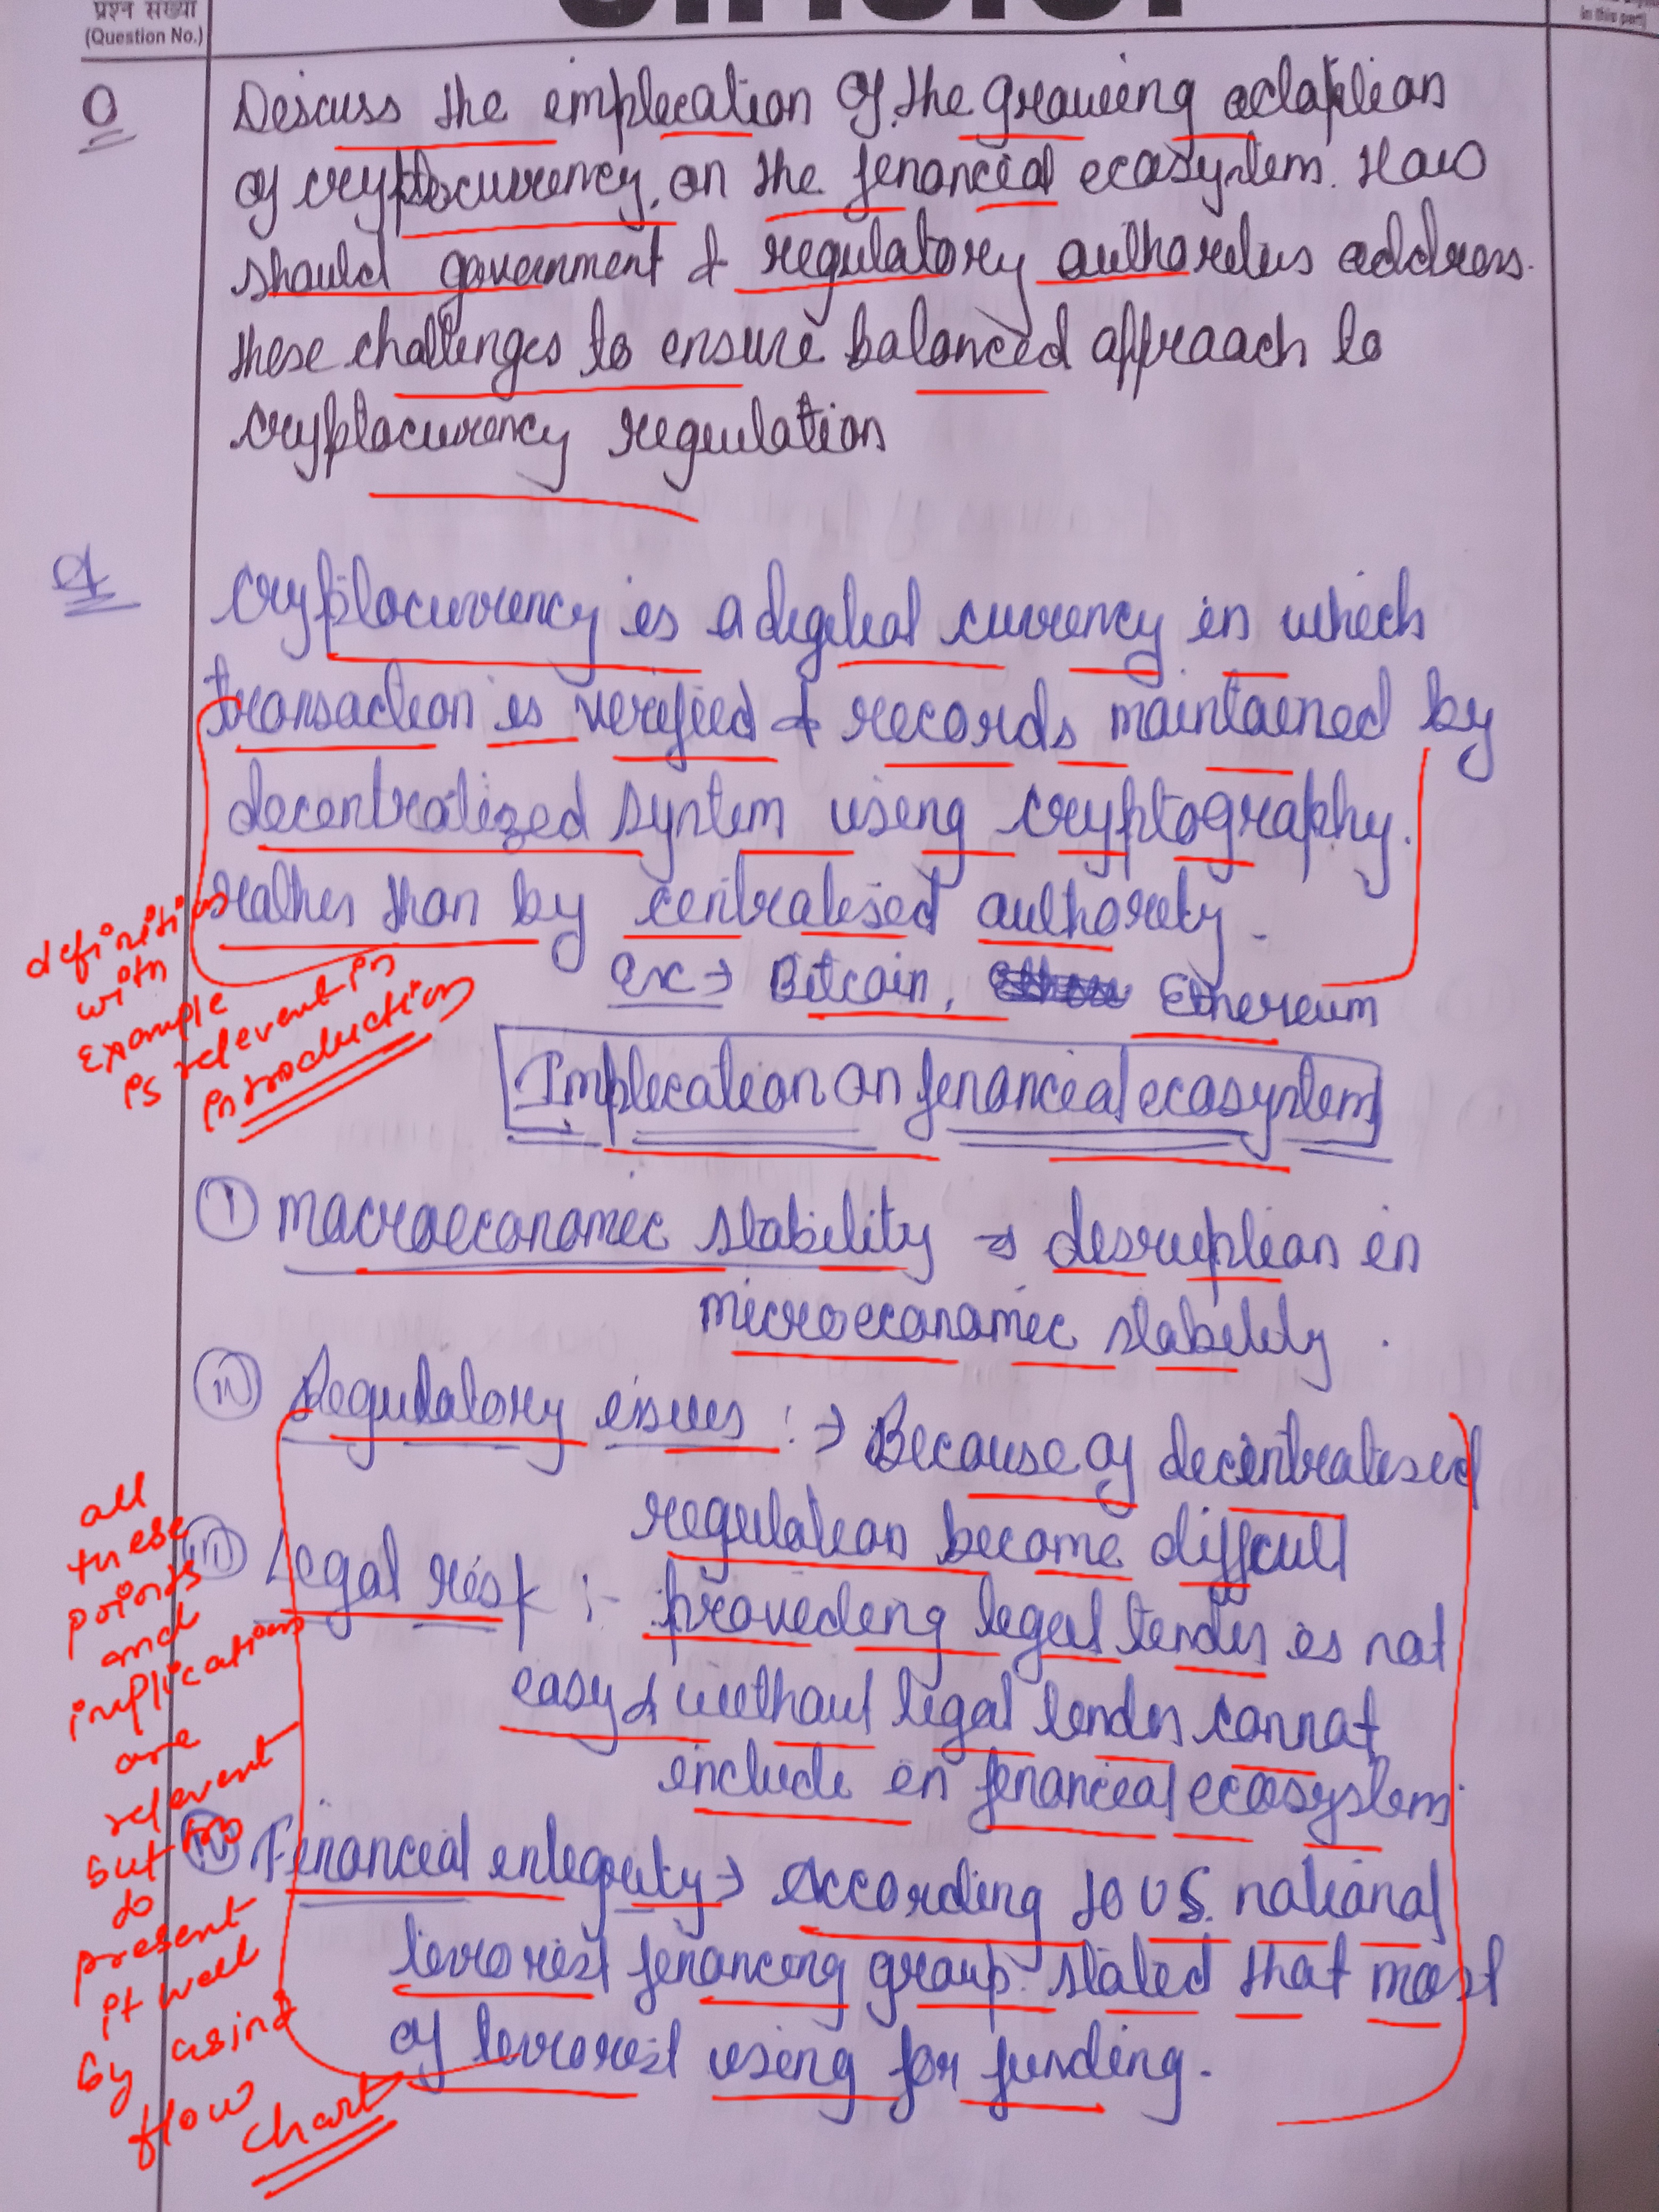 प्रश्न संख्या
(Question No.)
in this part)
Q
Discuss the implication of the growing adaption
of cryptocurrency on the financial ecosystem. How
should government & regulatory authorities address
these challenges to ensure balanced approach to
cryptocurrency regulation
Cryptocurrency is a digital currency in which
transaction is verified & records maintained by
decentralized system using cryptography.
rather than by centralised authority.
ex → Bitcoin, Ethereum
definition
with
example
is relevent in
introduction
Implication on financial ecosystem
① Macroeconomic stability → disruption in
microeconomic stability.
(ii) Regulatory issues :→ Because of decentralised
regulation become difficult
(iii) Legal risk :- providing legal tender is not
easy & without legal tender cannot
include in financial ecosystem.
(iv) Financial integrity → According to US. national
terrorist financing group stated that most
of terrorist using for funding.
all
these
points
and
implications
are
relevent
but
do
present
it well
by
flow
chart